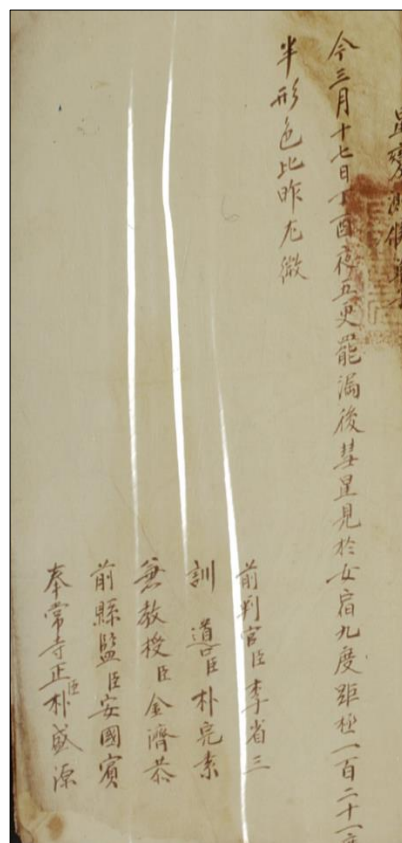 今三月十七日丁酉夜五更罷漏後彗星見於女宿九度距極一百二十一度
半形色比昨尤微
前判官臣李省三
訓　導臣朴完素
兼教授臣金濟恭
前縣監臣安國賓
奉常寺正臣朴盛源